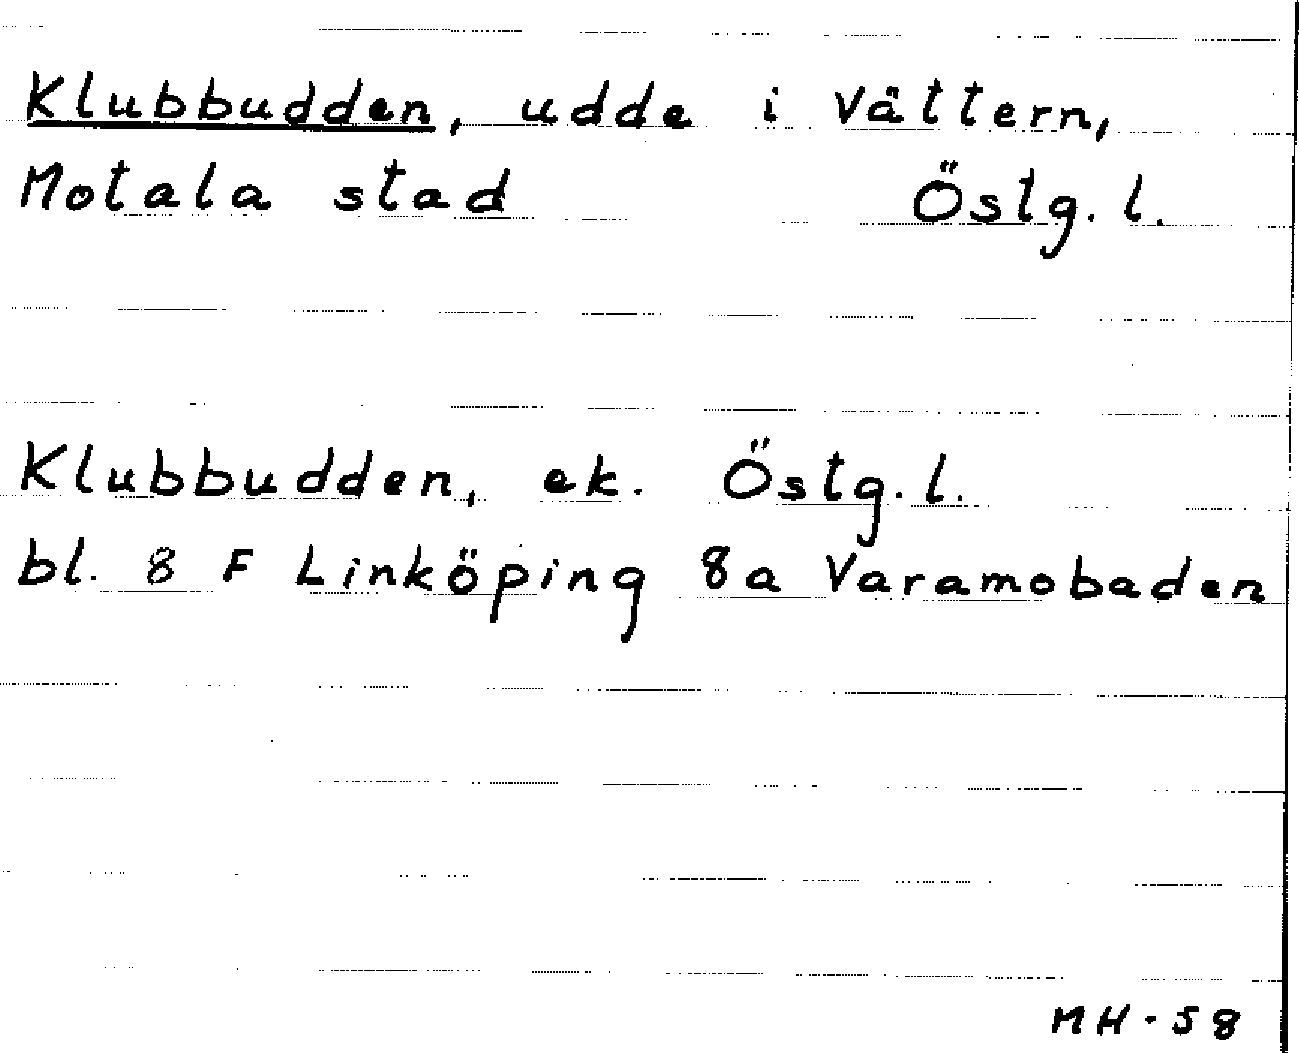 Klubbudden, udde i Vättern,
Motala stad Östg. l.
Klubbudden, ek. Östg. l.
bl. 8 F Linköping 8a Varamobaden
MH-58